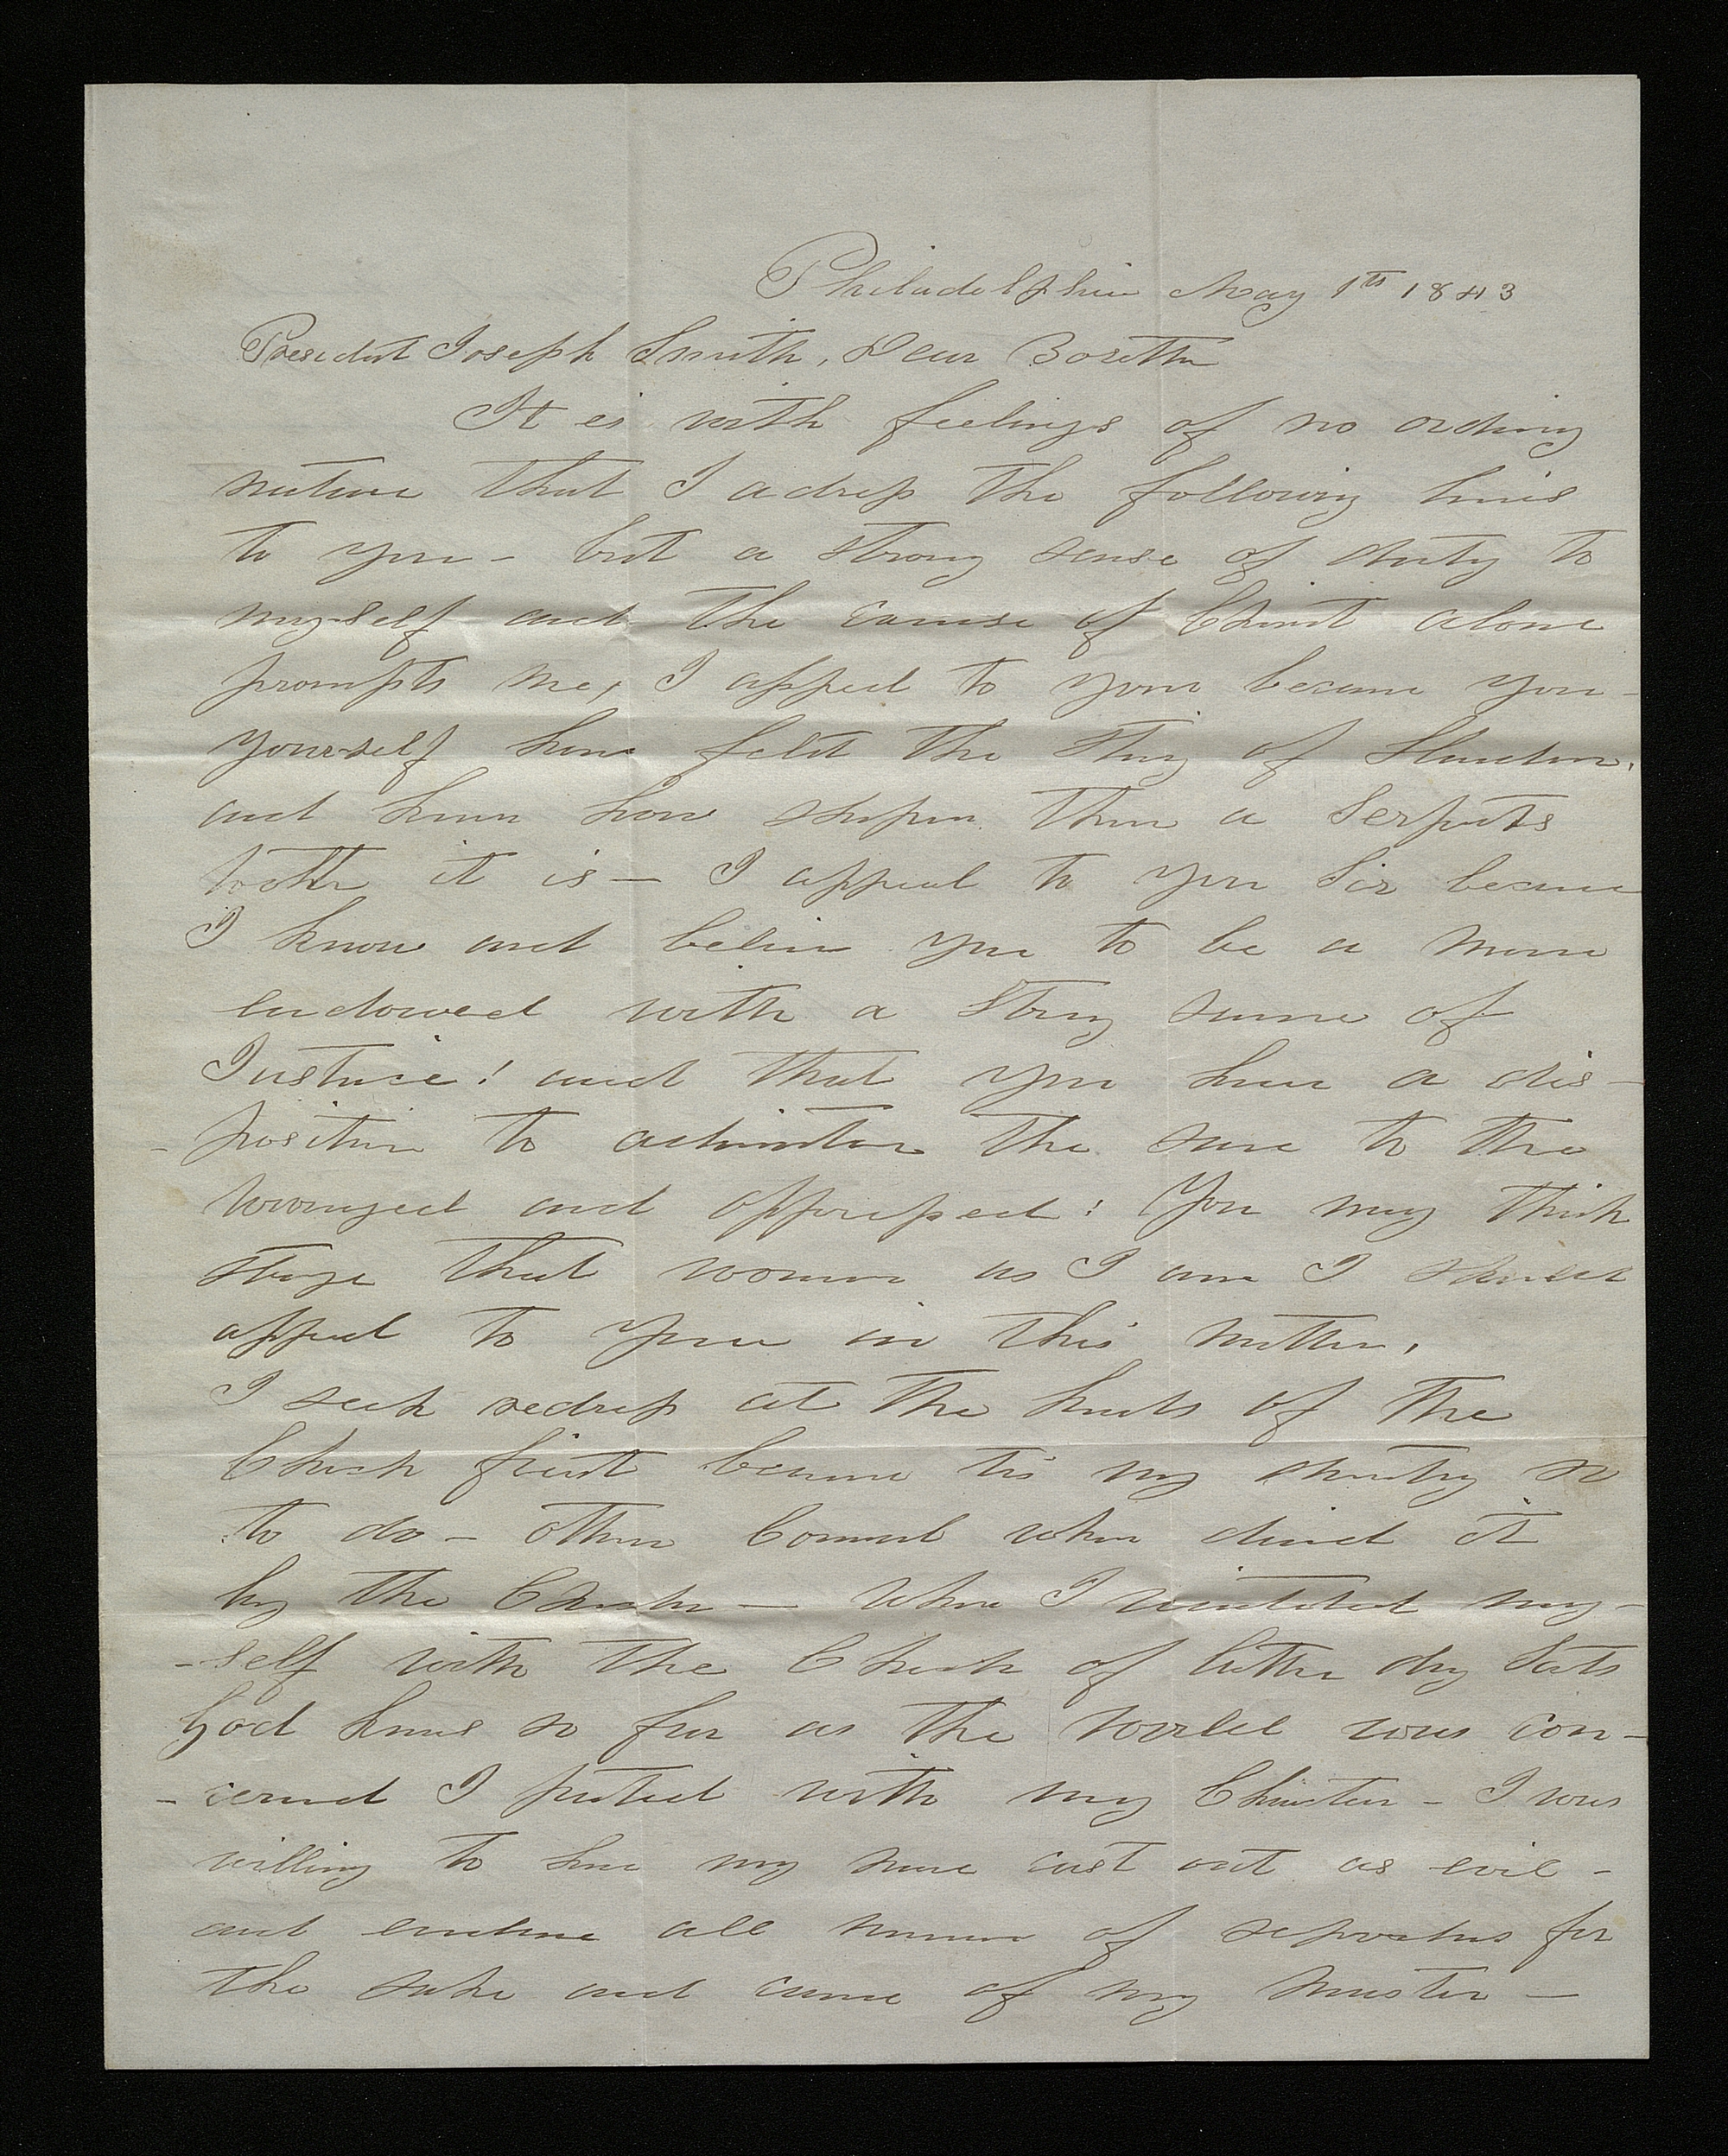 Philadelphia May 1th 1843
President Joseph Smith, Dear Borethr
It is with feelings of no ordiniy
nature that I adress the following lines
to you – but a strong sense of duty to
my-self and the cause of Christ alone
prompts me, I appeal to your because you-
yourself have feldt the sting of Slander,
and know how sharper than a Serpents
tooth it is – I appeal to you Sir because
I know and believe you to be a mane
endowed with a strong sense of
Justice! and that you have a dis-
-position to adminster the same to the
wronged and oppressed! You may think
strange that woman as I am I should
appeal to you in this matter,
I seek redress at the hands of the
Church first because tis my duty so
to do – other Counsel when denied it
by the Church – when I united my-
-self with the Church of latter day Sats
God knows so far as the world was con-
-cerned I parted with my Charicter – I was
willing to have my name cast out as evil –
and endure all manner of reproches for
the sake and cause of my master –